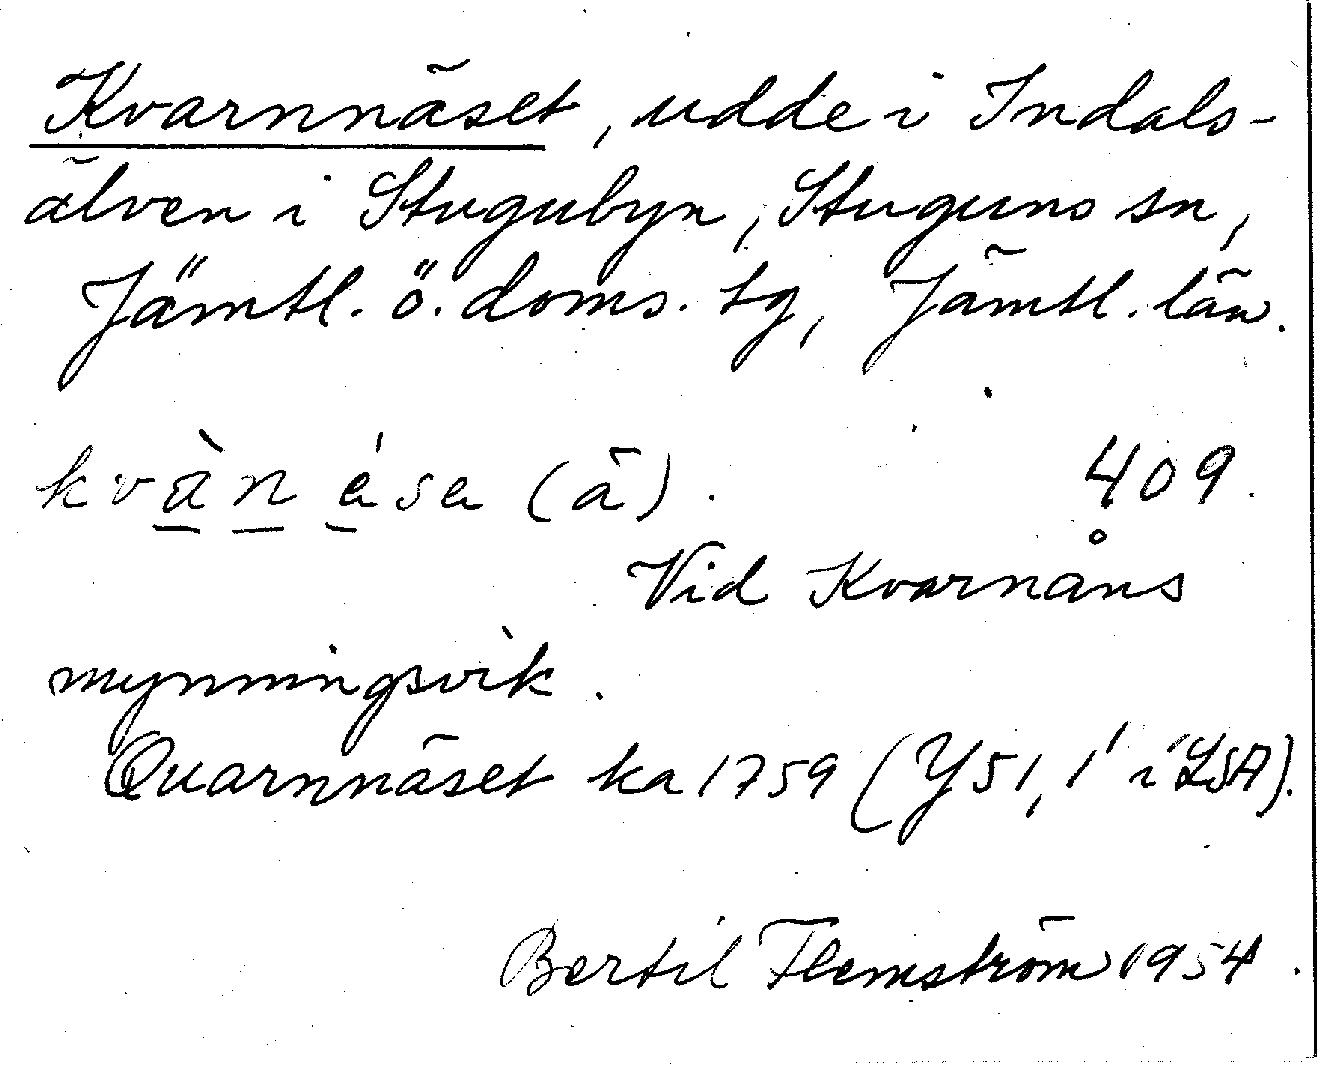 Kvarnnäset, udde i Indals-
älven i Stugubyn, Stuguns sn,
Jämtl. ö. doms. tg, Jämtl. län.
kvànésa (ā). 409.
Vid Kvarnåns
mynningsvik.
Quarnnäset ka 1759 (Y51, 1' i LSA).
Bertil Flemström 1954.